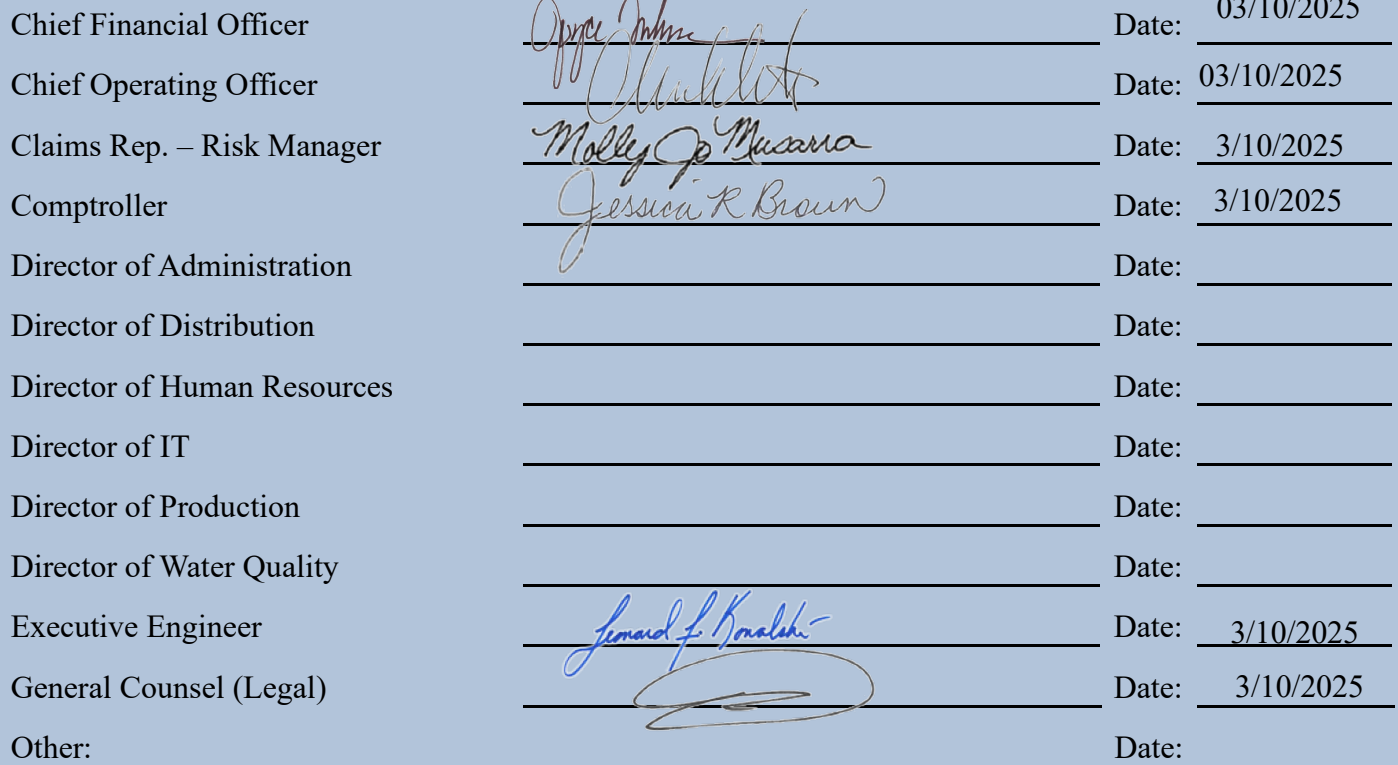 Chief Financial Officer Date: 03/10/2025
Chief Operating Officer Date: 03/10/2025
Claims Rep. – Risk Manager Molly Jo Musarra Date: 3/10/2025
Comptroller Jessica R Brown Date: 3/10/2025
Director of Administration Date:
Director of Distribution Date:
Director of Human Resources Date:
Director of IT Date:
Director of Production Date:
Director of Water Quality Date:
Executive Engineer Leonard F. Kowalski Date: 3/10/2025
General Counsel (Legal) Date: 3/10/2025
Other: Date: